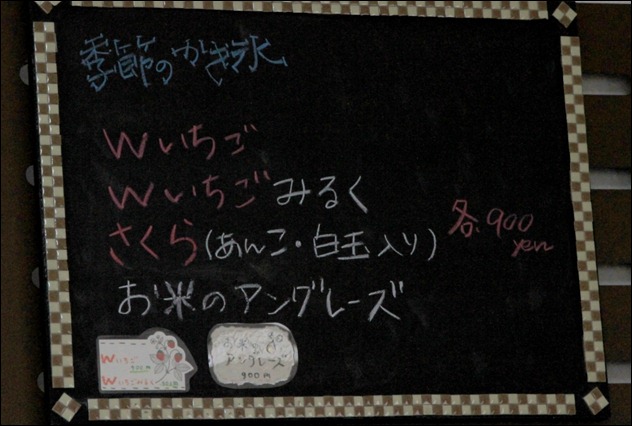 季節のかき氷
Wいちご
Wいちごみるく
さくら(あんこ・白玉入り)
各900
yen
お米のアングレーズ
Wいちご
Wいちごみるく
お米の
アングレーズ
900円